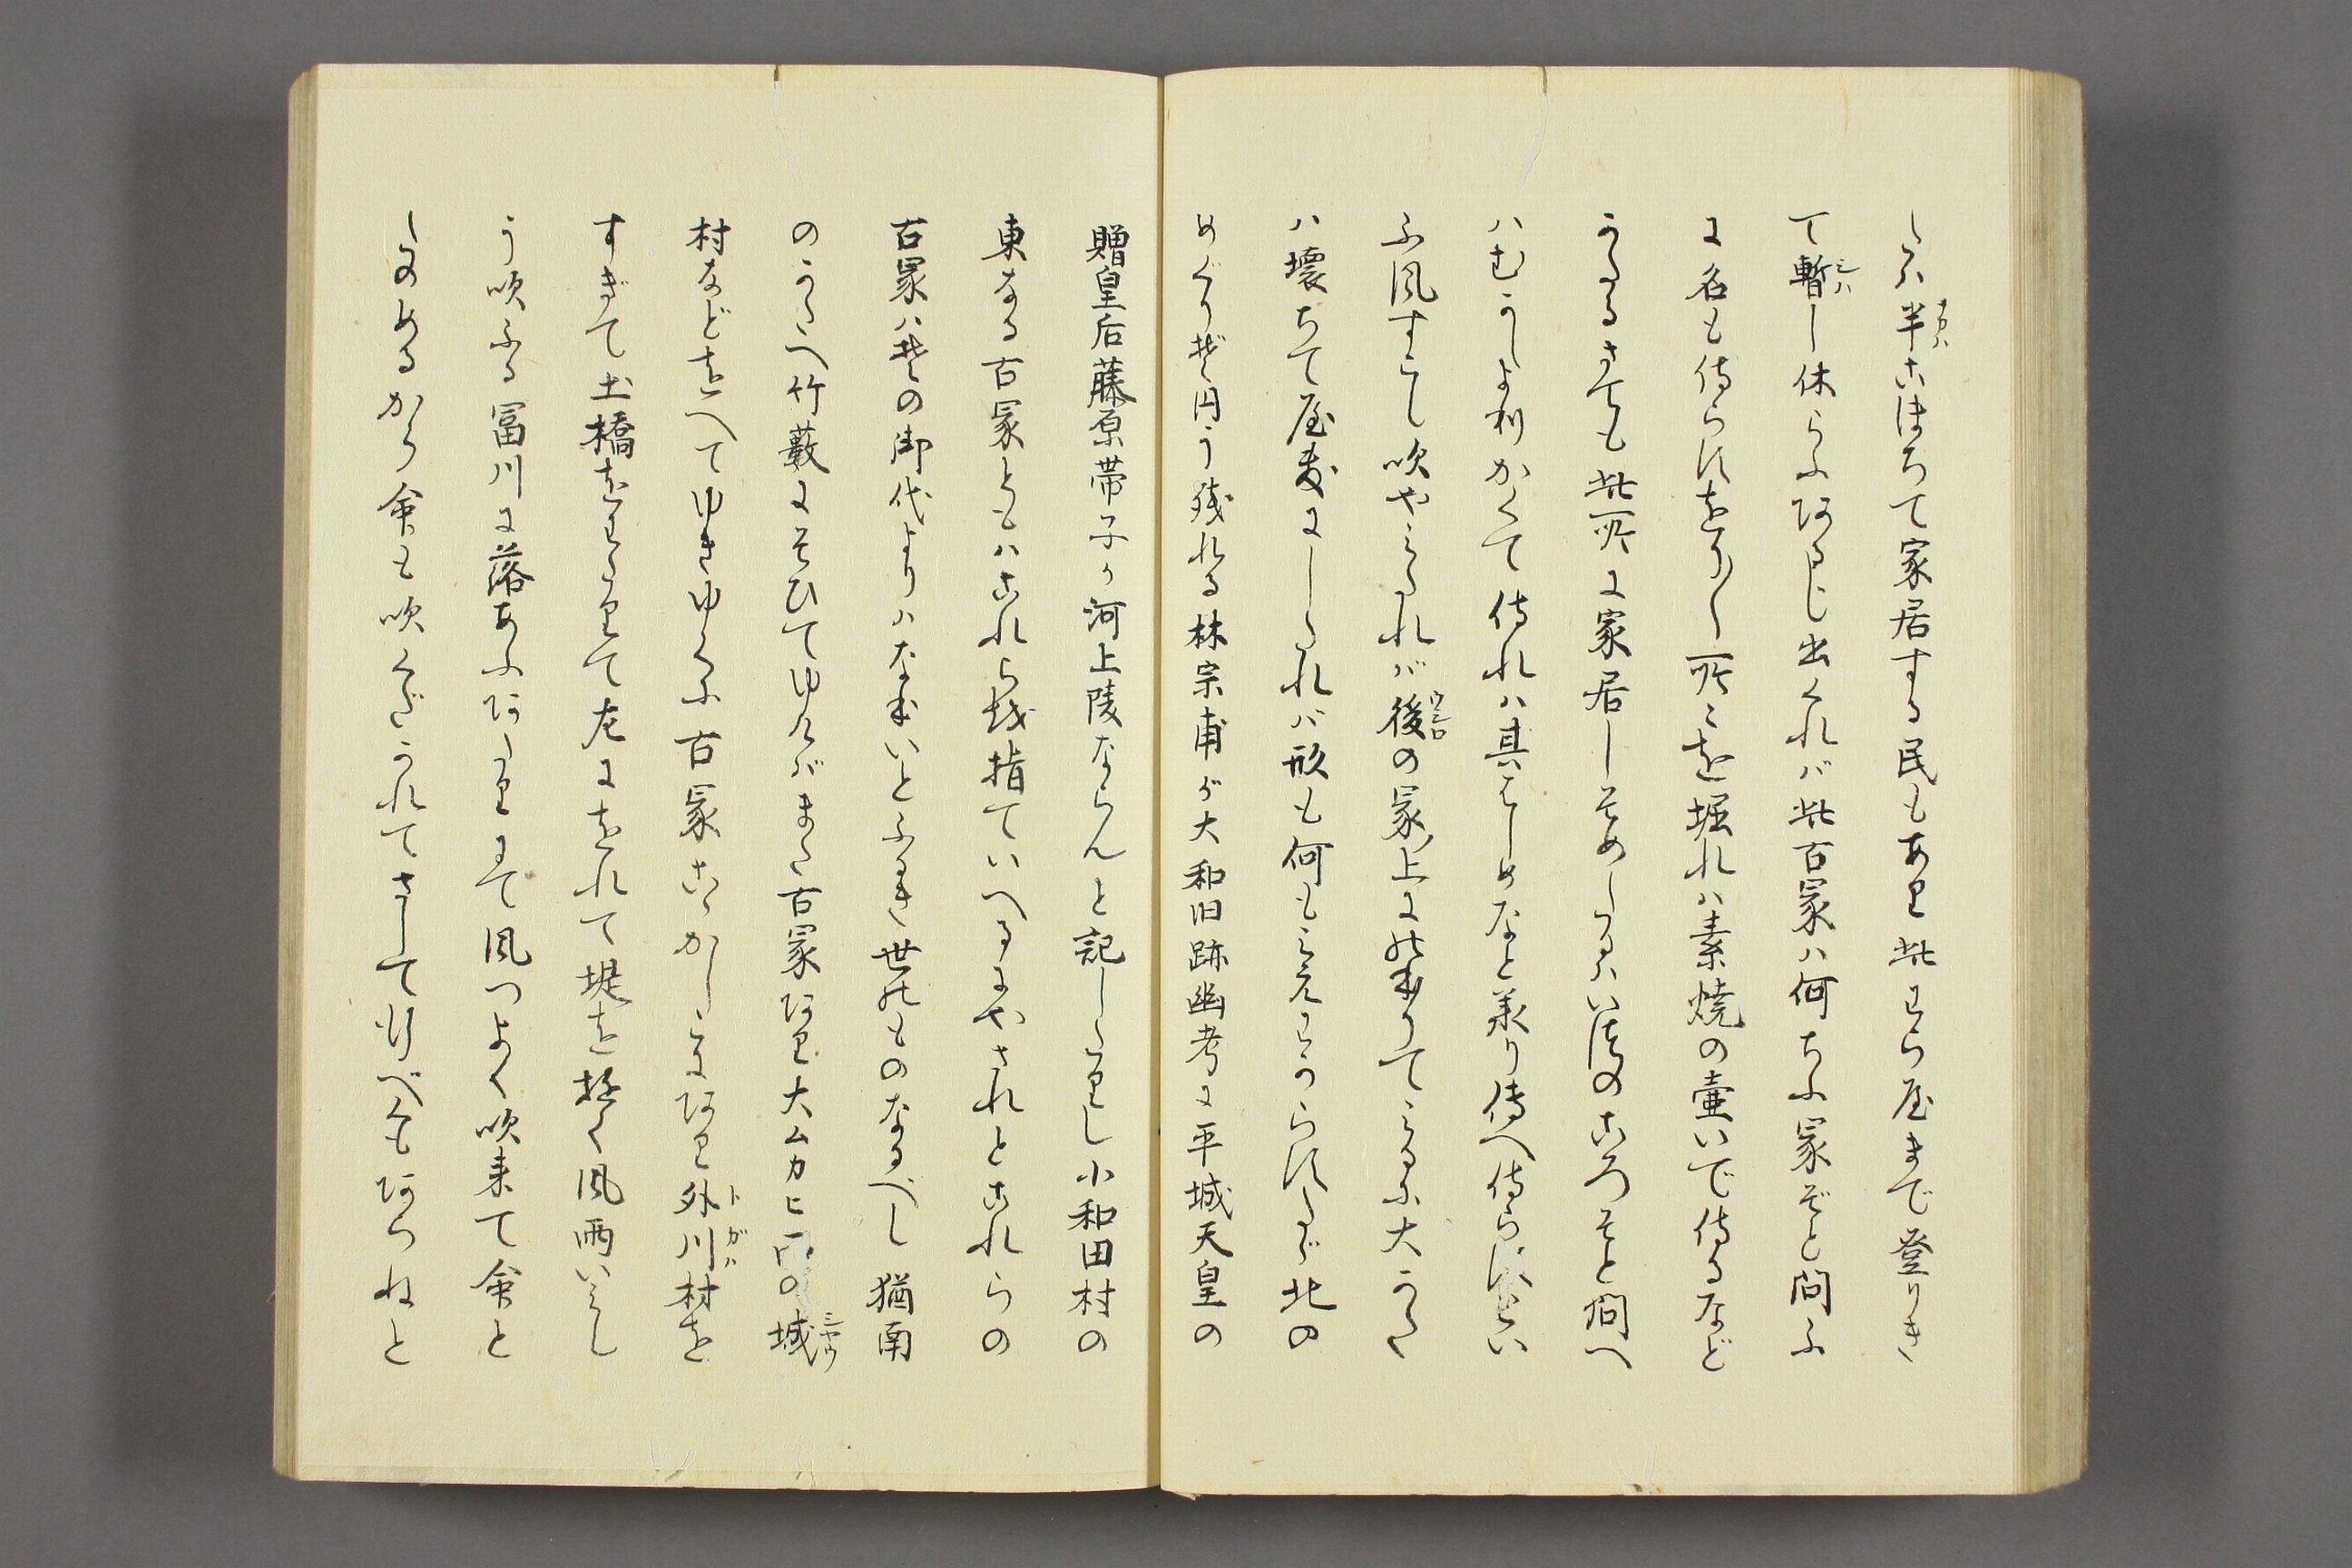 しハ半こほちて家居する民もあり此わら屋まで登りき
て暫し休らふにあるじ出くれバ此古冢ハ何ちふ冢ぞと問ふ
に名も侍らすをり〱所〻を堀れハ素焼の壷いで侍るなど
うたるさても此所に家居しそめしハいつのころそと問へ
ハむかしより かくて侍れハ其はしめなと承り傳へ侍らすとい
ふ風すこし吹やみたれバ後の冢上にのほりてみるに大かた
ハ壊ちて屋敷にしたれバ形も何もみえわからすたゞ北の
めぐりぞ円う残れる林宗甫が大和旧跡幽考に平城天皇の
贈皇后藤原帯子ノ河上陵ならんと記したりし小和田村の
東なる古冢ともハこれら越指ていへるにやされとこれらの
古冢ハその御代よりハなほいとふるき世のものなるべし猶南
のかたへ竹藪にそひてゆけバまた古冢あり大ムカヒの城
村などをへてゆきゆくに古冢こゝかしこにあり外川村を
すぎて土橋をわたりて左にをれて堤を極く風雨いみし
う吹ふる冨川に落あふあたりにて風つよく吹来て傘と
しのめるから傘も吹くだかれてさして行べくもあらねと